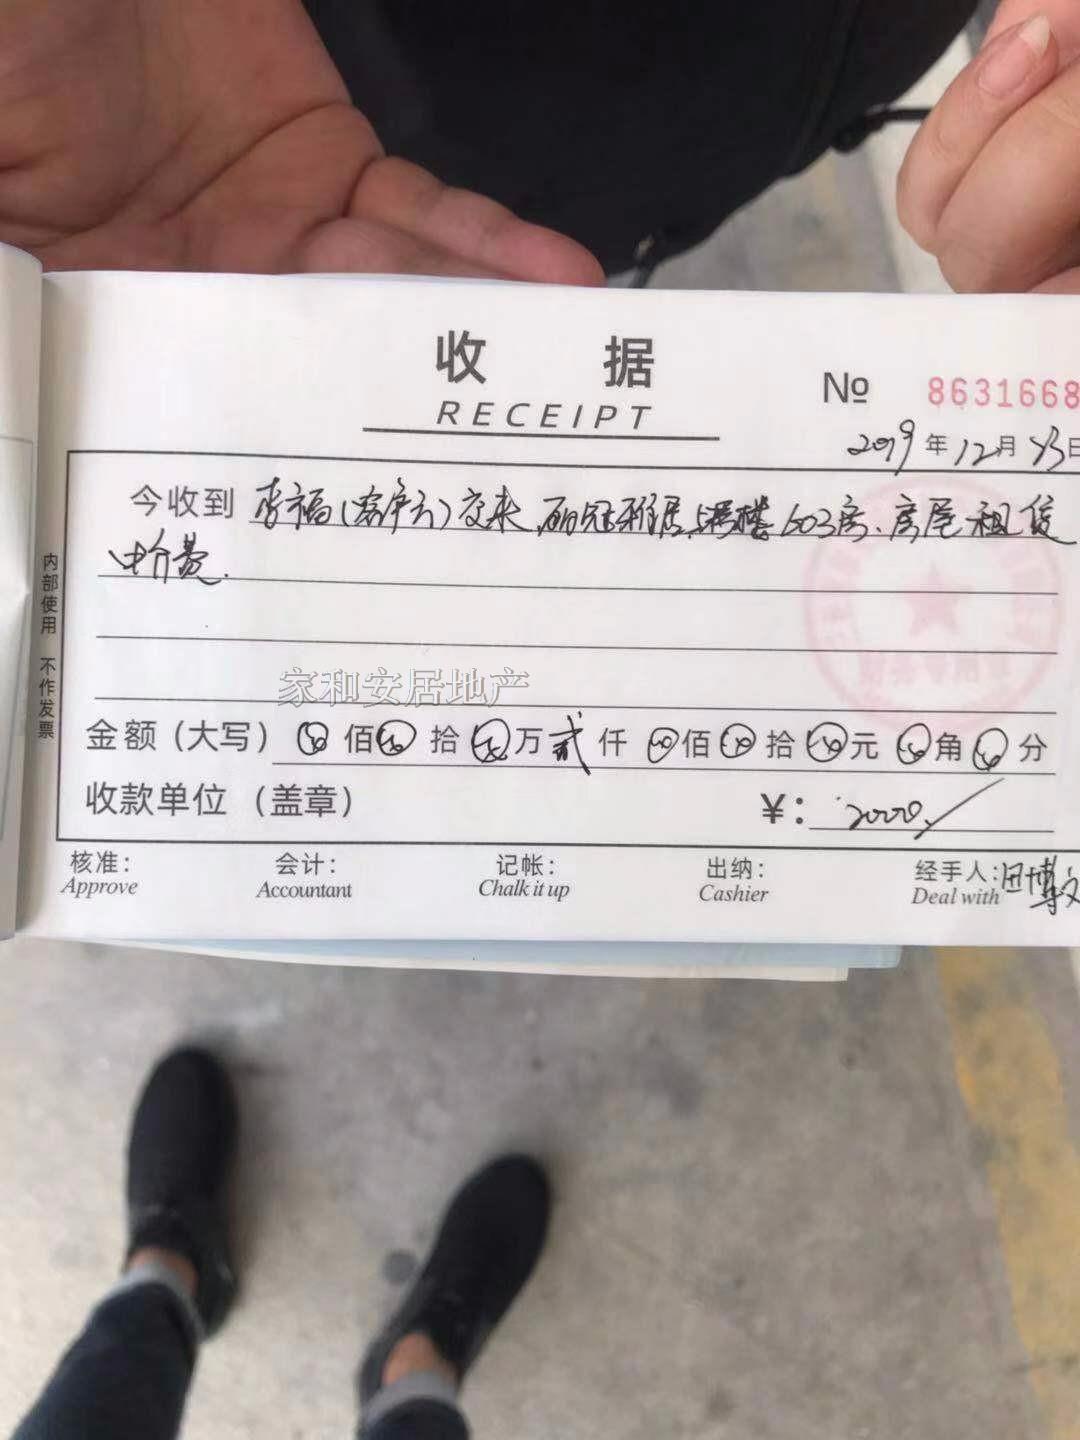 收 据
RECEIPT
No 8631668
2019年12月
今收到 李福(客户方)交来
603房、房屋租赁
中介费.
内部使用 不作发票
家和安居地产
金额(大写) 佰 拾 万 贰 仟 佰 拾 元 角 分
收款单位(盖章) ¥: 2000
核准: 会计: 记帐: 出纳: 经手人: 田博文
Approve Accountant Chalk it up Cashier Deal with